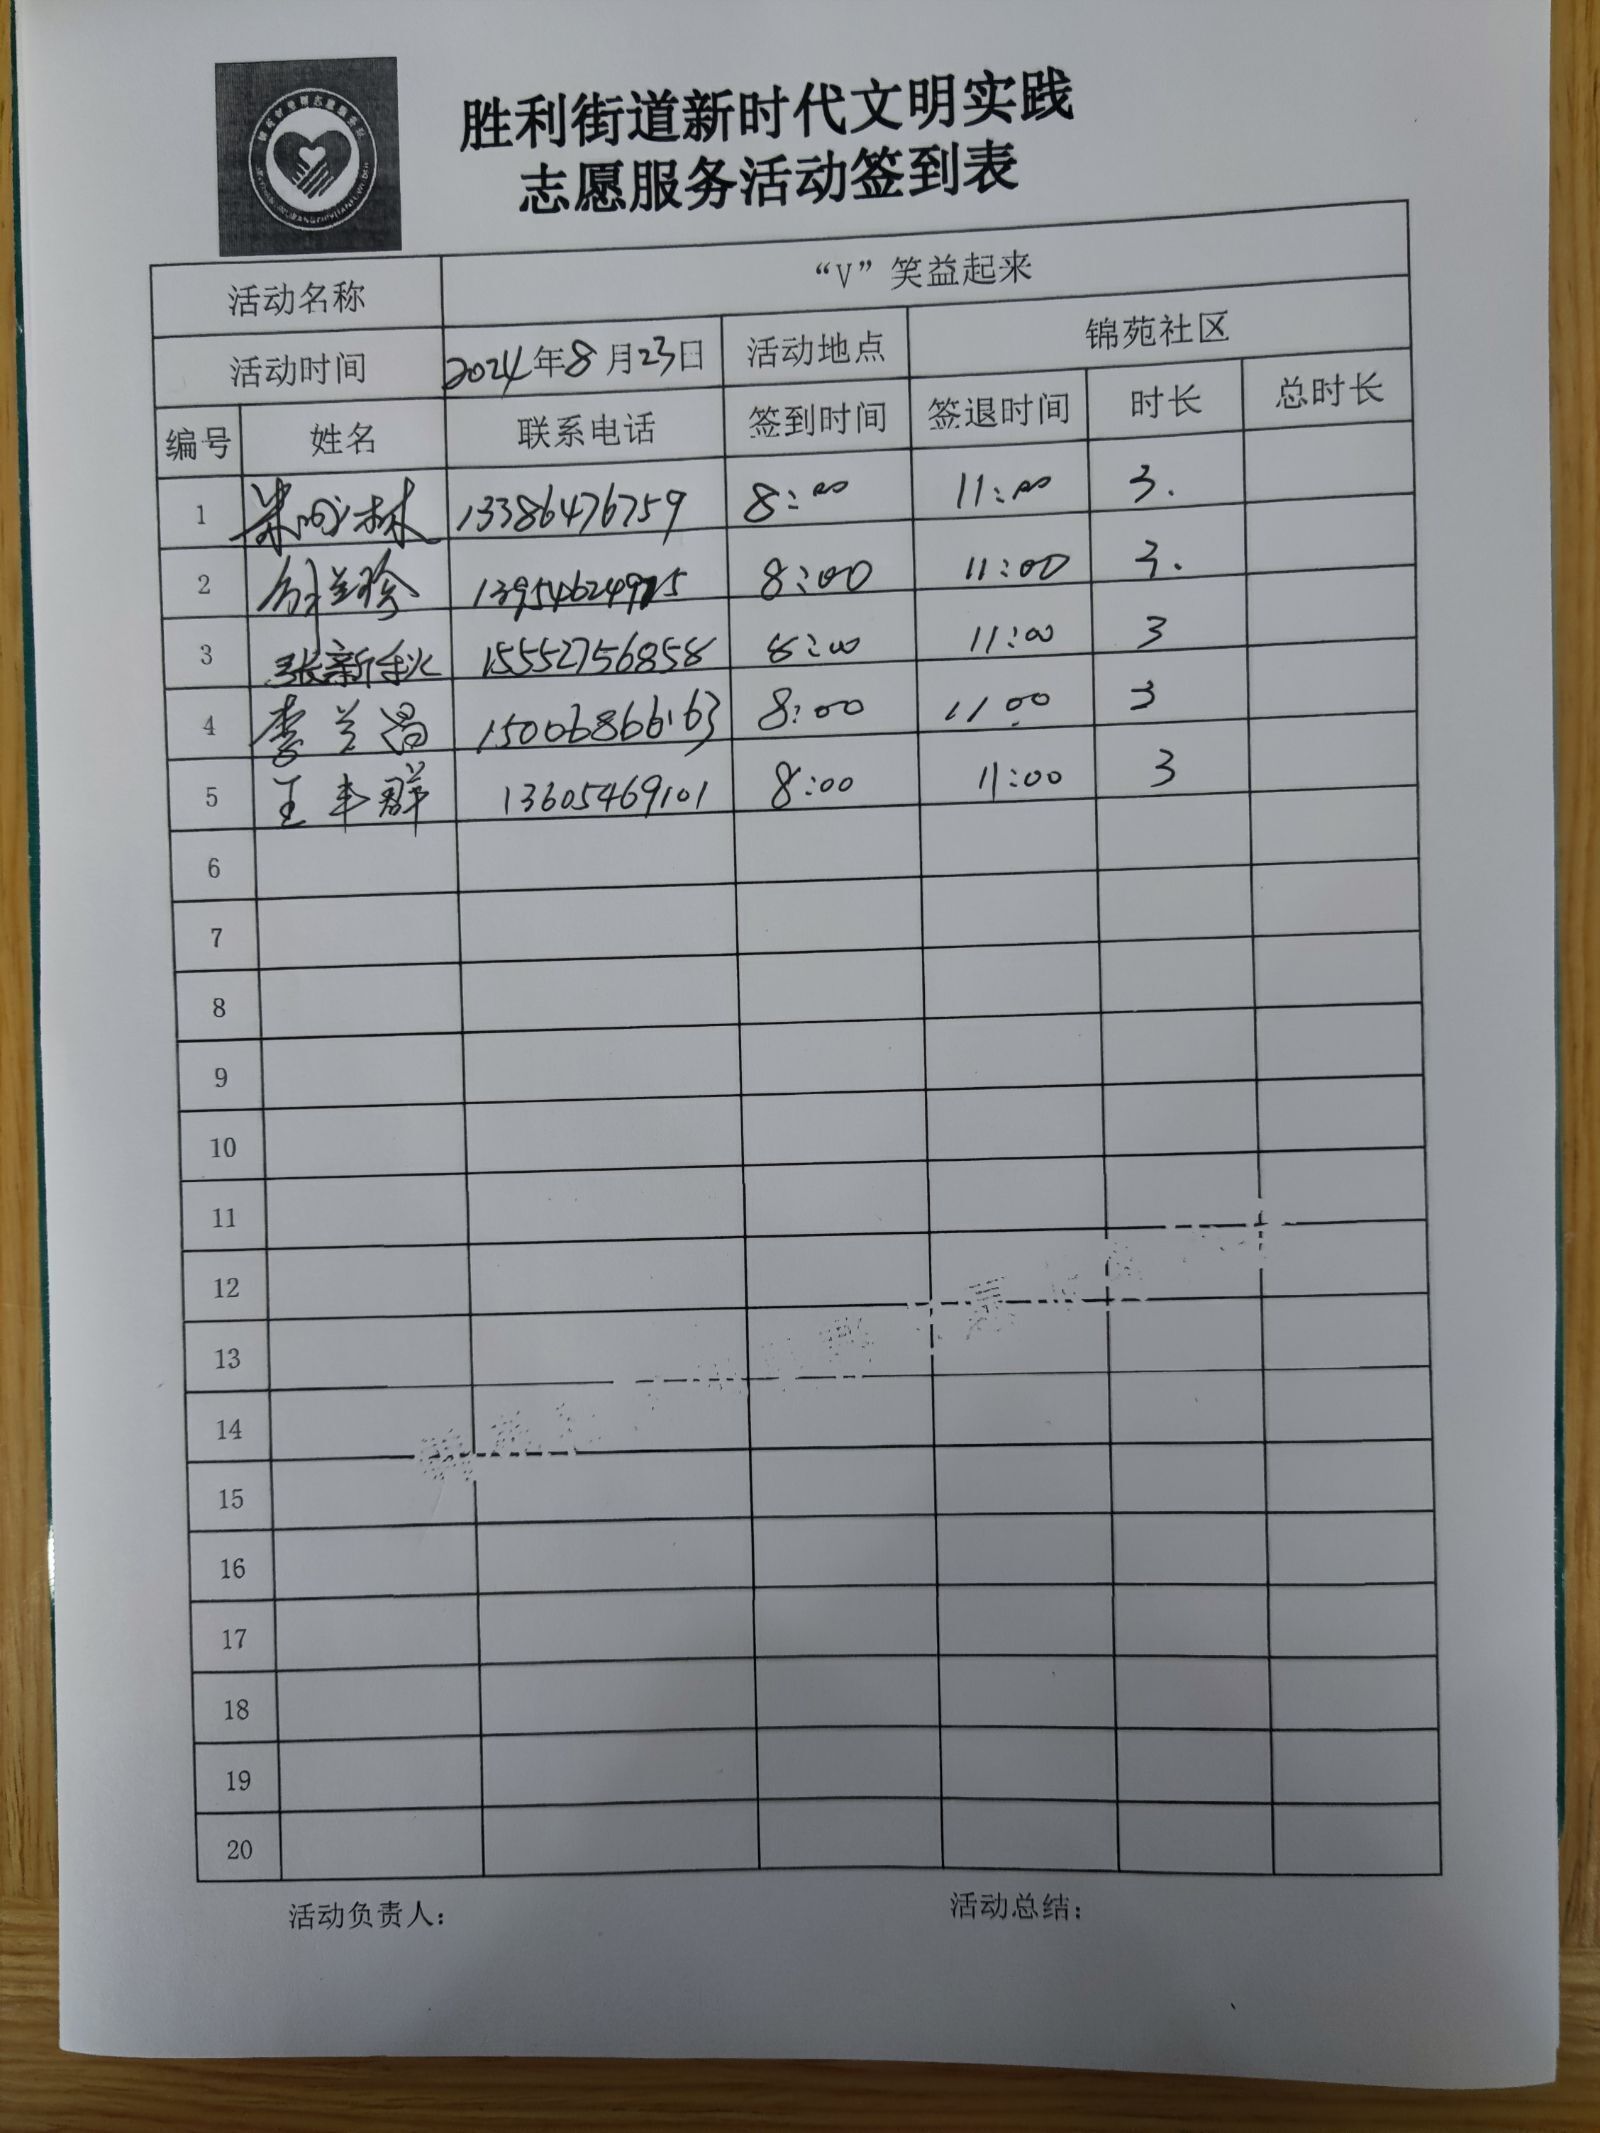 胜利街道新时代文明实践
志愿服务活动签到表
活动名称 “V”笑益起来
活动时间 2024年8月23日 活动地点 锦苑社区
编号 姓名 联系电话 签到时间 签退时间 时长 总时长
1 林 13386476759 8:00 11:00 3.
2 兰珍 8:00 11:00 3.
3 张新秋 15552756858 8:00 11:00 3
4 李兰 15006866163 8:00 11:00 3
5 王丰群 13605469101 8:00 11:00 3
6
7
8
9
10
11
12
13
14
15
16
17
18
19
20
活动负责人： 活动总结：